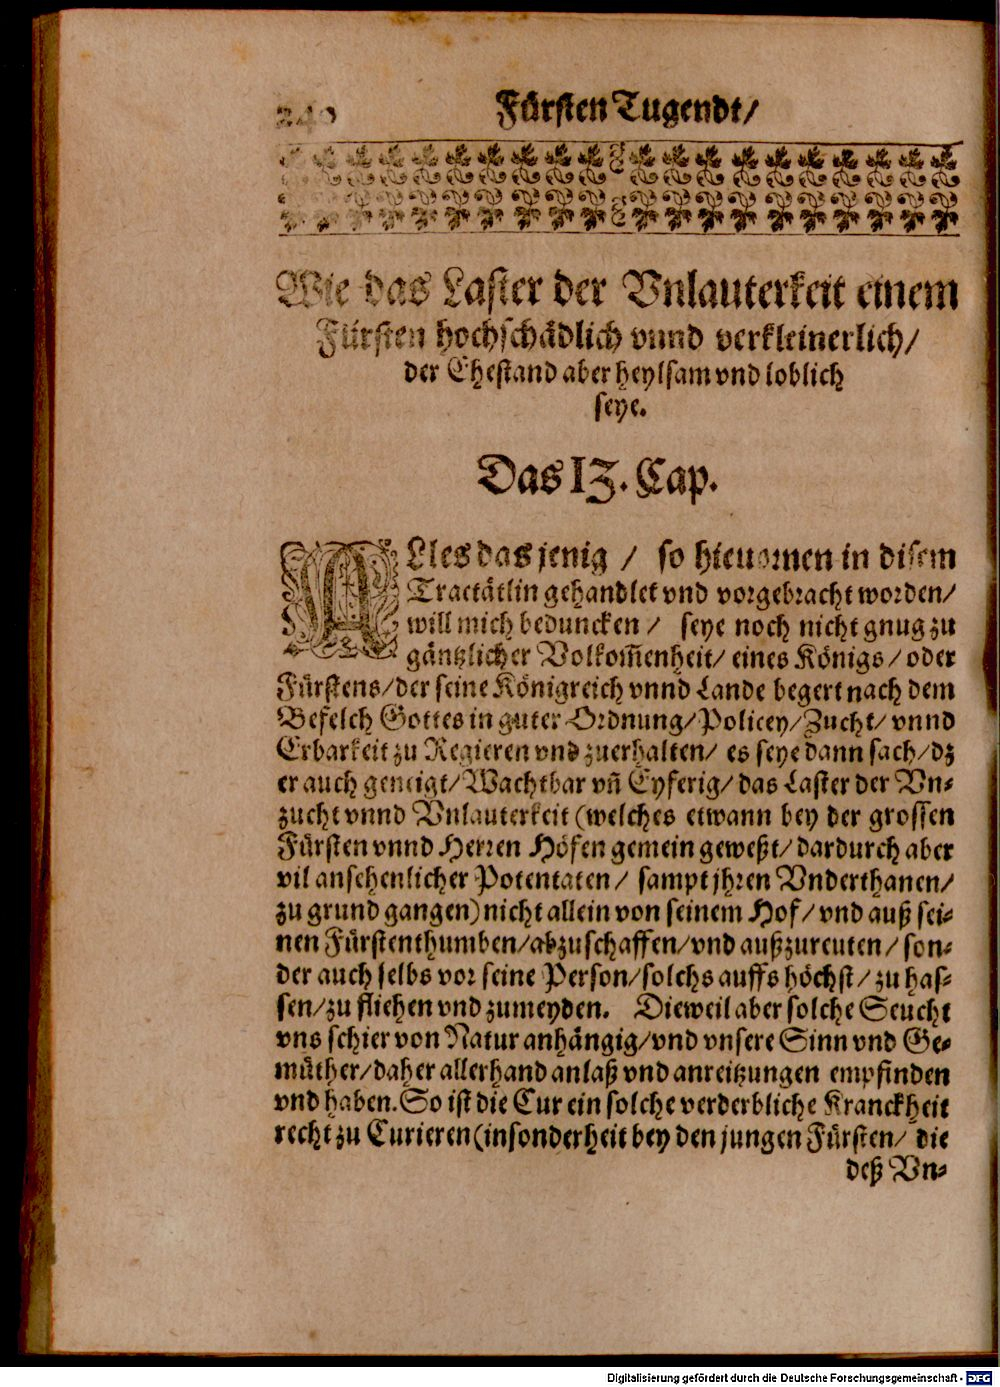 240 Fürsten Tugendt/
Wie das Laster der Vnlauterkeit einem
Fürsten hochschädlich vnnd verkleinerlich/
der Ehestand aber heylsam vnd loblich
seye.
Das 13. Cap.
ALles das jenig / so hieuornen in disem
Tractätlin gehandlet vnd vorgebracht worden/
will mich beduncken / seye noch nicht gnug zu
gäntzlicher Volkom̃enheit/ eines Königs/ oder
Fürstens/der seine Königreich vnnd Lande begert nach dem
Befelch Gottes in guter Ordnung/Policey/Zucht/ vnnd
Erbarkeit zu Regieren vnd zuerhalten/ es seye dann sach/dz
er auch geneigt/Wachtbar vñ Eyferig/ das Laster der Vn-
zucht vnnd Vnlauterkeit (welches etwann bey der grossen
Fürsten vnnd Herren Höfen gemein geweßt/ dardurch aber
vil ansehenlicher Potentaten/ sampt jhren Vnderthanen/
zu grund gangen) nicht allein von seinem Hof/ vnd auß sei-
nen Fürstenthumben/abzuschaffen/vnd außzureuten/ son-
der auch selbs vor seine Person/solchs auffs höchst/ zu has-
sen/zu fliehen vnd zumeyden. Dieweil aber solche Seucht
vns schier von Natur anhängig/vnd vnsere Sinn vnd Ge-
müther/daher allerhand anlaß vnd anreitzungen empfinden
vnd haben. So ist die Cur ein solche verderbliche Kranckheit
recht zu Curieren (insonderheit bey den jungen Fürsten/ die
deß Vn-
Digitalisierung gefördert durch die Deutsche Forschungsgemeinschaft - DFG